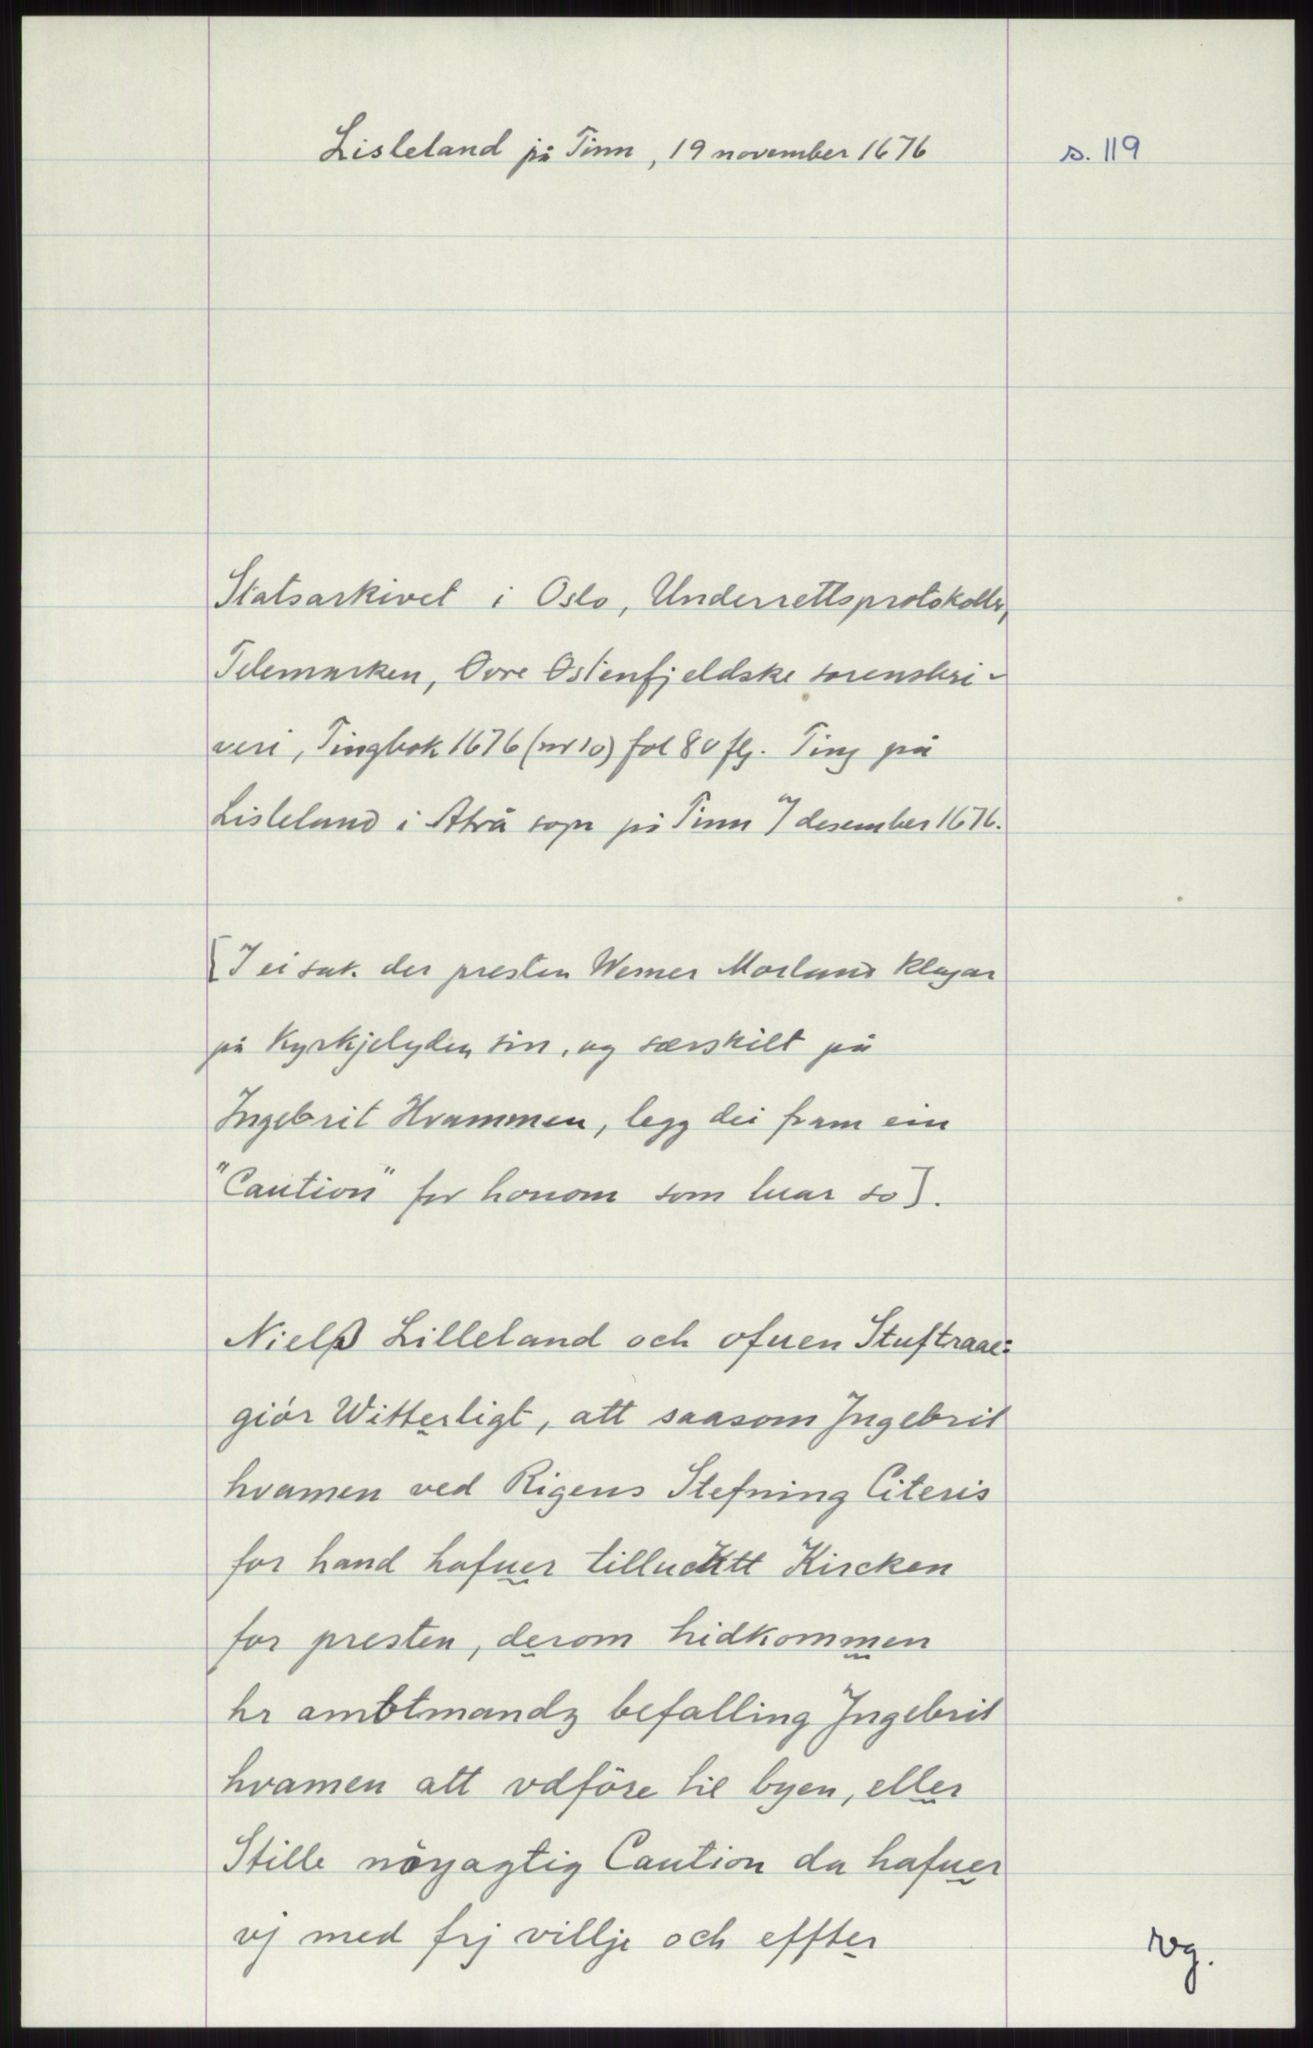 Lisleland på Tinn, 19 november 1676
s. 119
Statsarkivet i Oslo, Underrettsprotokoller,
Telemarken, Øvre Østenfjeldske sorenskri-
veri, Tingbok 1676 (nr 10) fol 80 flg. Ting på
Lisleland i Atrå sogn på Tinn 7 desember 1676.
[I ei sak der presten Werner Morland klagar
på kyrkjelyden sin, og særskilt på
Ingebrit Hvammen, legg dei fram ein
"Caution" for honom som luar so].
Nielß Lilleland och ofuen Stuftraae:
giör Witterligt, att saasom Ingebrit
hvamen ved Rigens Stefning Citeris
for hand hafuer tillucktt Kircken
for presten, derom hidkommen
hr ambtmandz befalling Ingebrit
hvamen att vdföre til byen, eller
Stille nöyagtig Caution da hafuer
vj med frj villje och effter
rvg.